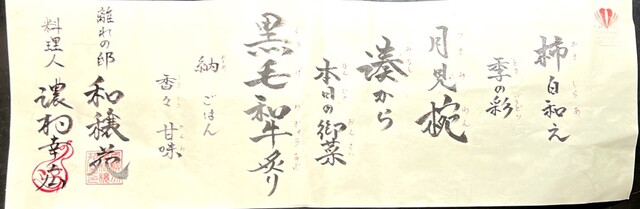 柿白和え
季の彩
月見椀
湊から
本日の御菜
黒毛和牛炙り
納 ごはん
香々 甘味
離れの邸 和穣苑
料理人 濃村幸宏